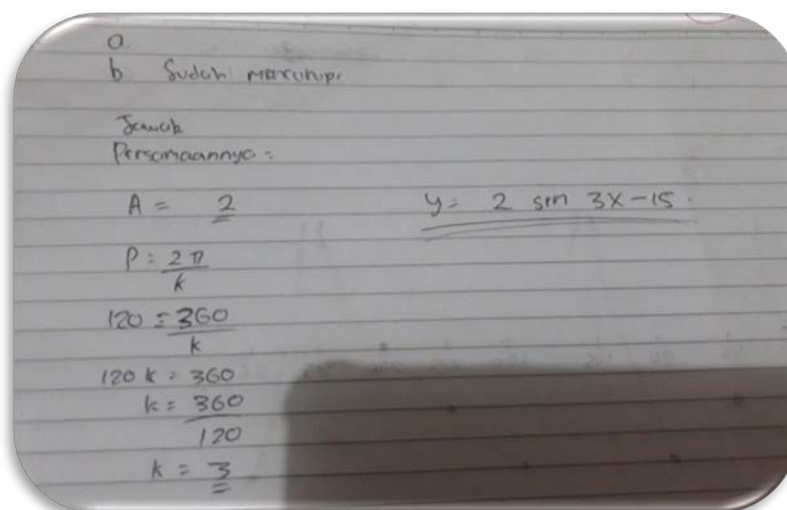 a.
b Sudah mencakupi
Jawab
Persamaannya =
A = 2
y = 2 sin 3x - 15.
P = 2π
k
120 = 360
k
120 k = 360
k = 360
120
k = 3